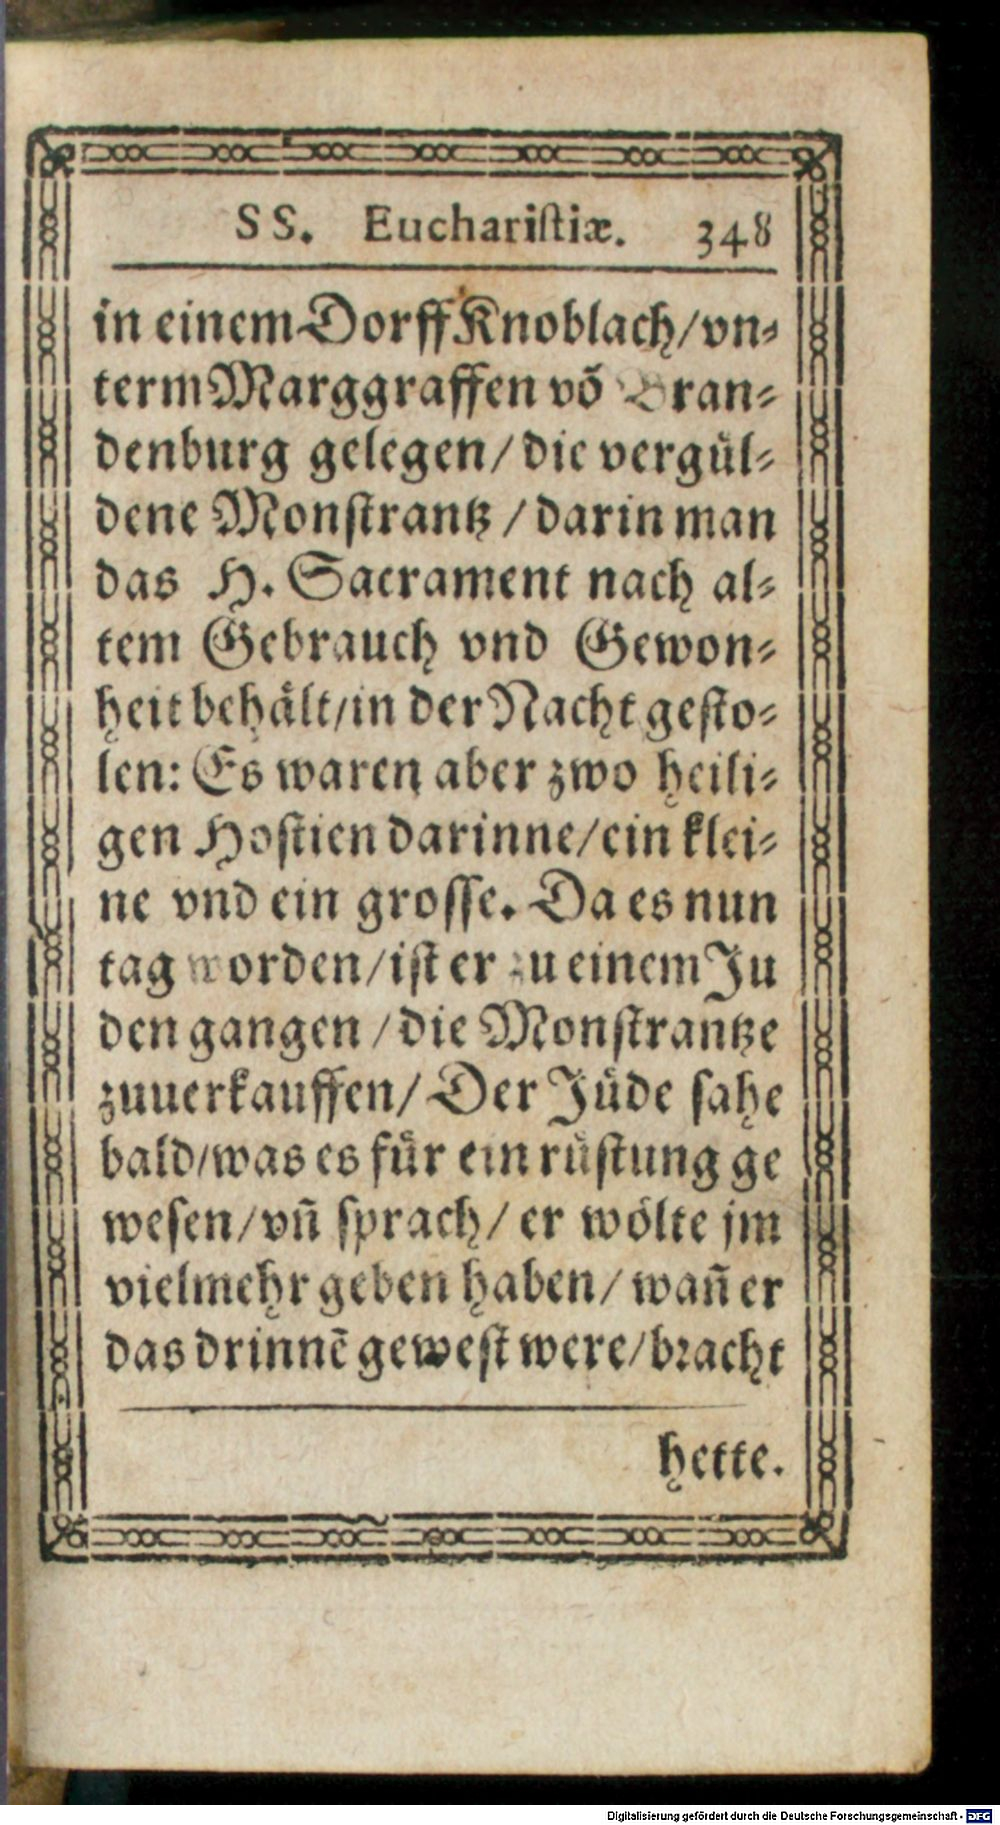 SS. Euchariſtiæ. 348
in einem Dorff Knoblach/vn⸗
term Marggraffen võ Bran⸗
denburg gelegen/die vergül⸗
dene Monſtrantz/darin man
das H. Sacrament nach al⸗
tem Gebrauch vnd Gewon⸗
heit behält/in der Nacht geſto⸗
len: Es waren aber zwo heili⸗
gen Hoſtien darinne/ein klei⸗
ne vnd ein groſſe. Da es nun
tag worden/iſt er zu einem Ju
den gangen/die Monſtrantze
zuuerkauffen/Der Jüde ſahe
bald/was es für ein rüſtung ge
weſen/vñ ſprach/er wölte jm
vielmehr geben haben/wañ er
das drinnẽ geweſt were/bꝛacht
hette.
Digitalisierung gefördert durch die Deutsche Forschungsgemeinschaft - DFG